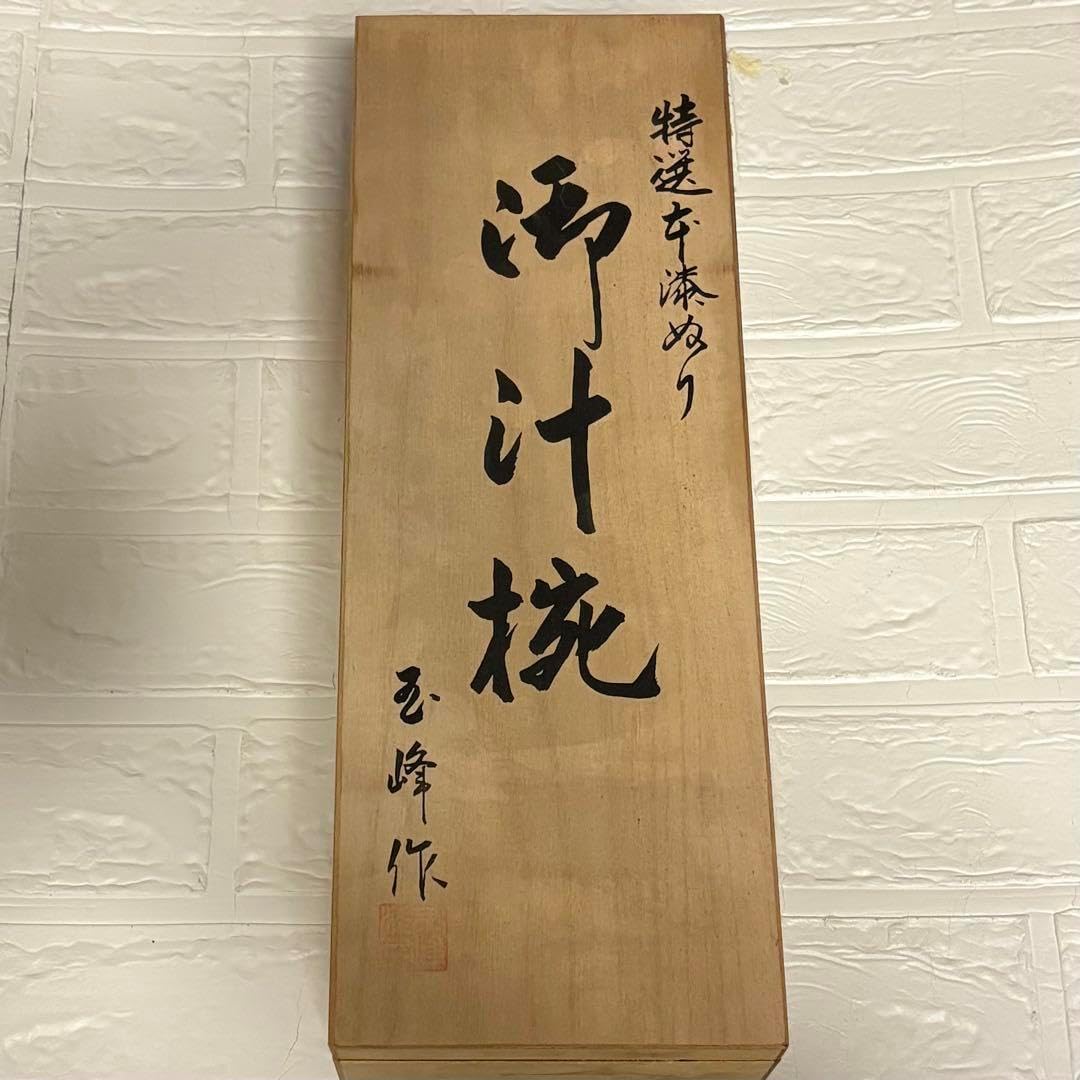 特選本漆ぬり
御汁椀
玉峰作